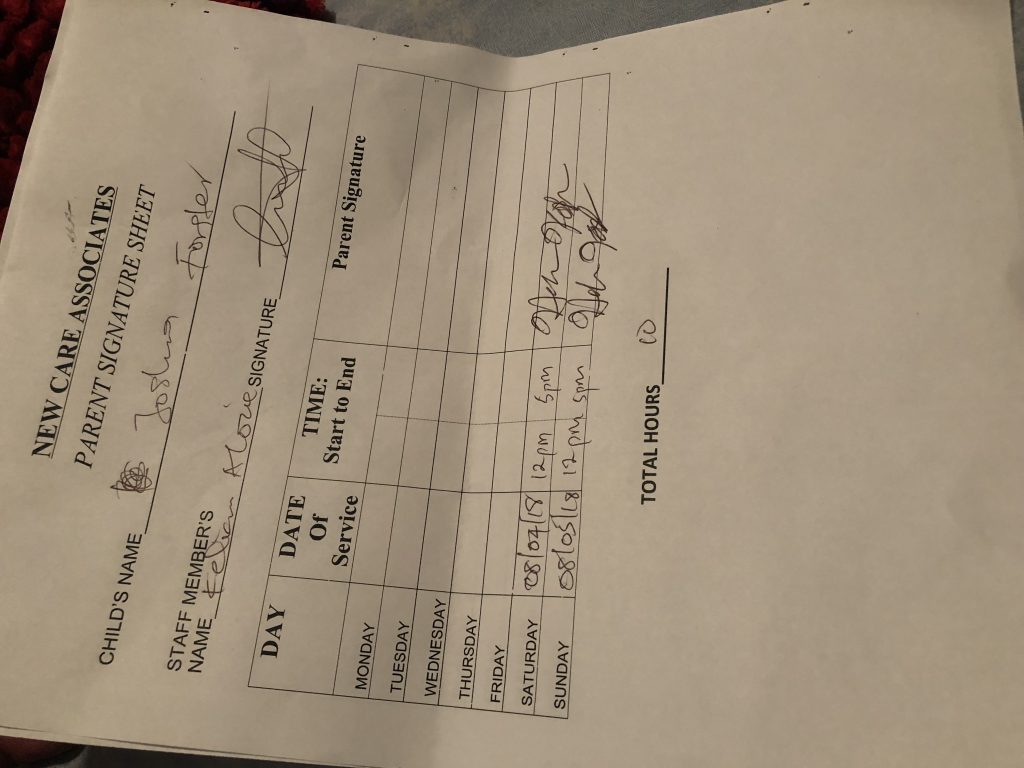 NEW CARE ASSOCIATES
PARENT SIGNATURE SHEET
CHILD'S NAME Joshua Forter
STAFF MEMBER'S
NAME SIGNATURE
DAY DATE Of Service TIME: Start to End Parent Signature
MONDAY
TUESDAY
WEDNESDAY
THURSDAY
FRIDAY
SATURDAY 08/04/18 12pm 5pm
SUNDAY 08/05/18 12pm 5pm
TOTAL HOURS